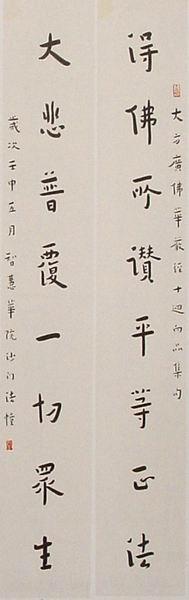 大方廣佛華嚴經十迴向品集句
得佛所讚平等正法
大悲普覆一切眾生
歲次壬申五月智慧華院沙門法